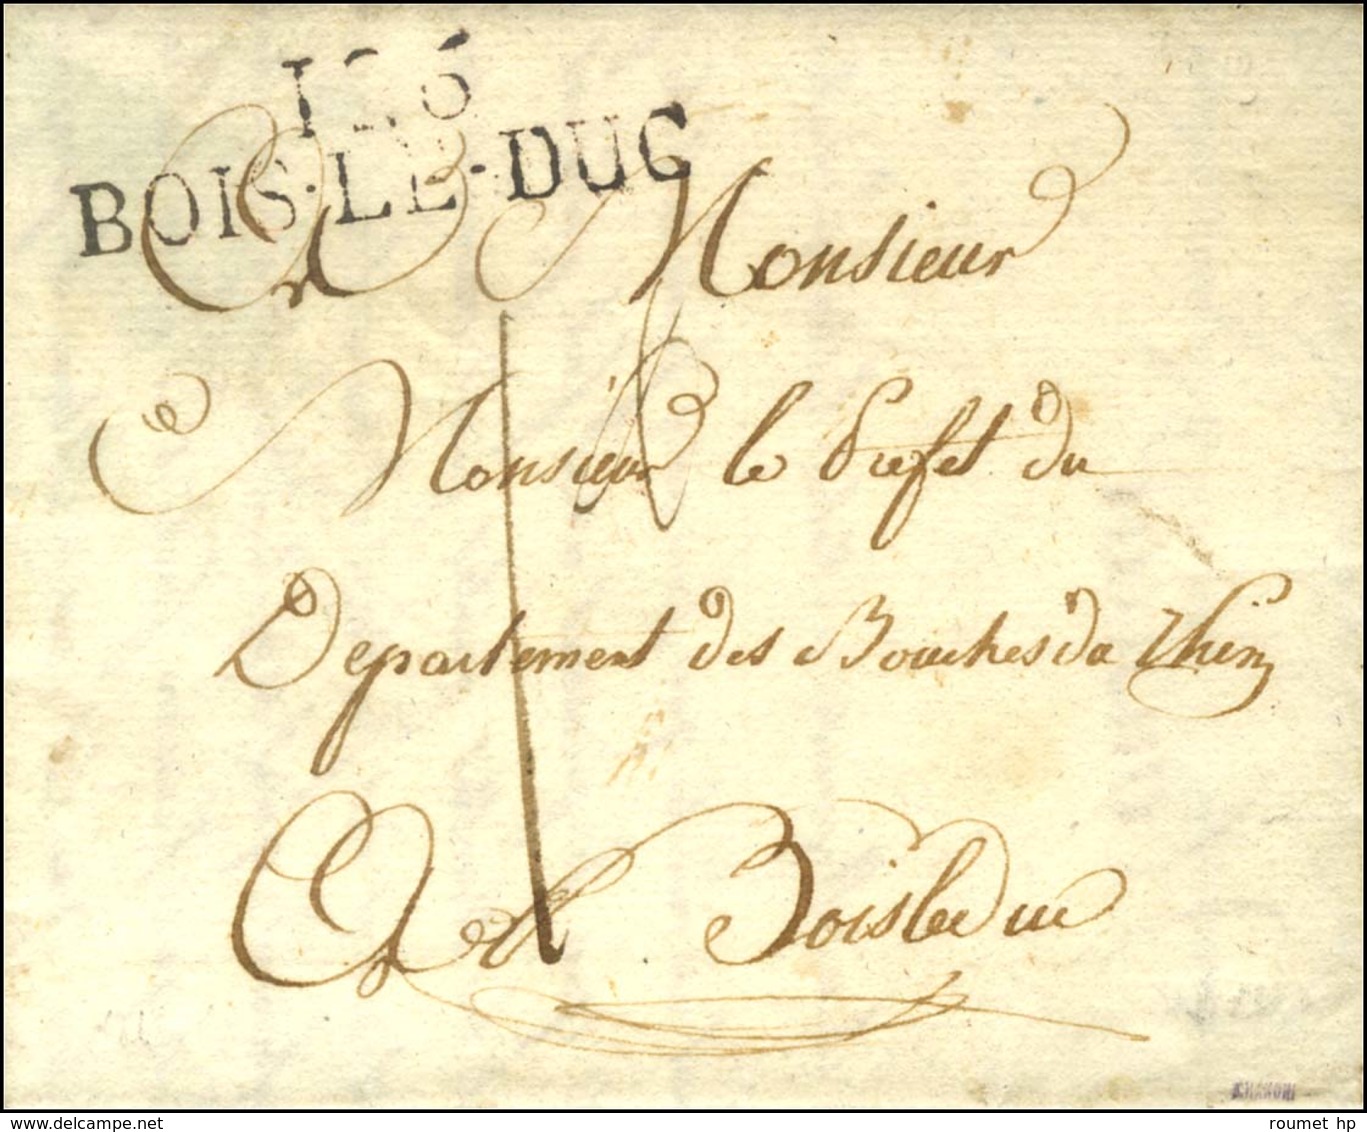 126
BOIS-LE-DUC
A Monsieur
Monsieur le Prefet du
Departement des Bouches du Rhin
a Boisleduc
www.delcampe.net
roumet hp